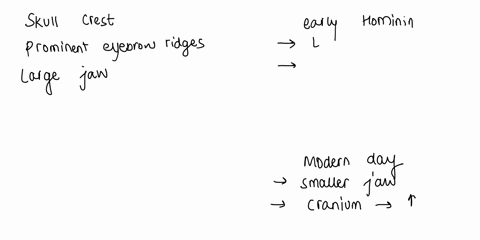 Skull Crest
Prominent eyebrow ridges
Large jaw
early Hominin
→ L
→
Modern day
→ smaller jaw
→ Cranium → ↑